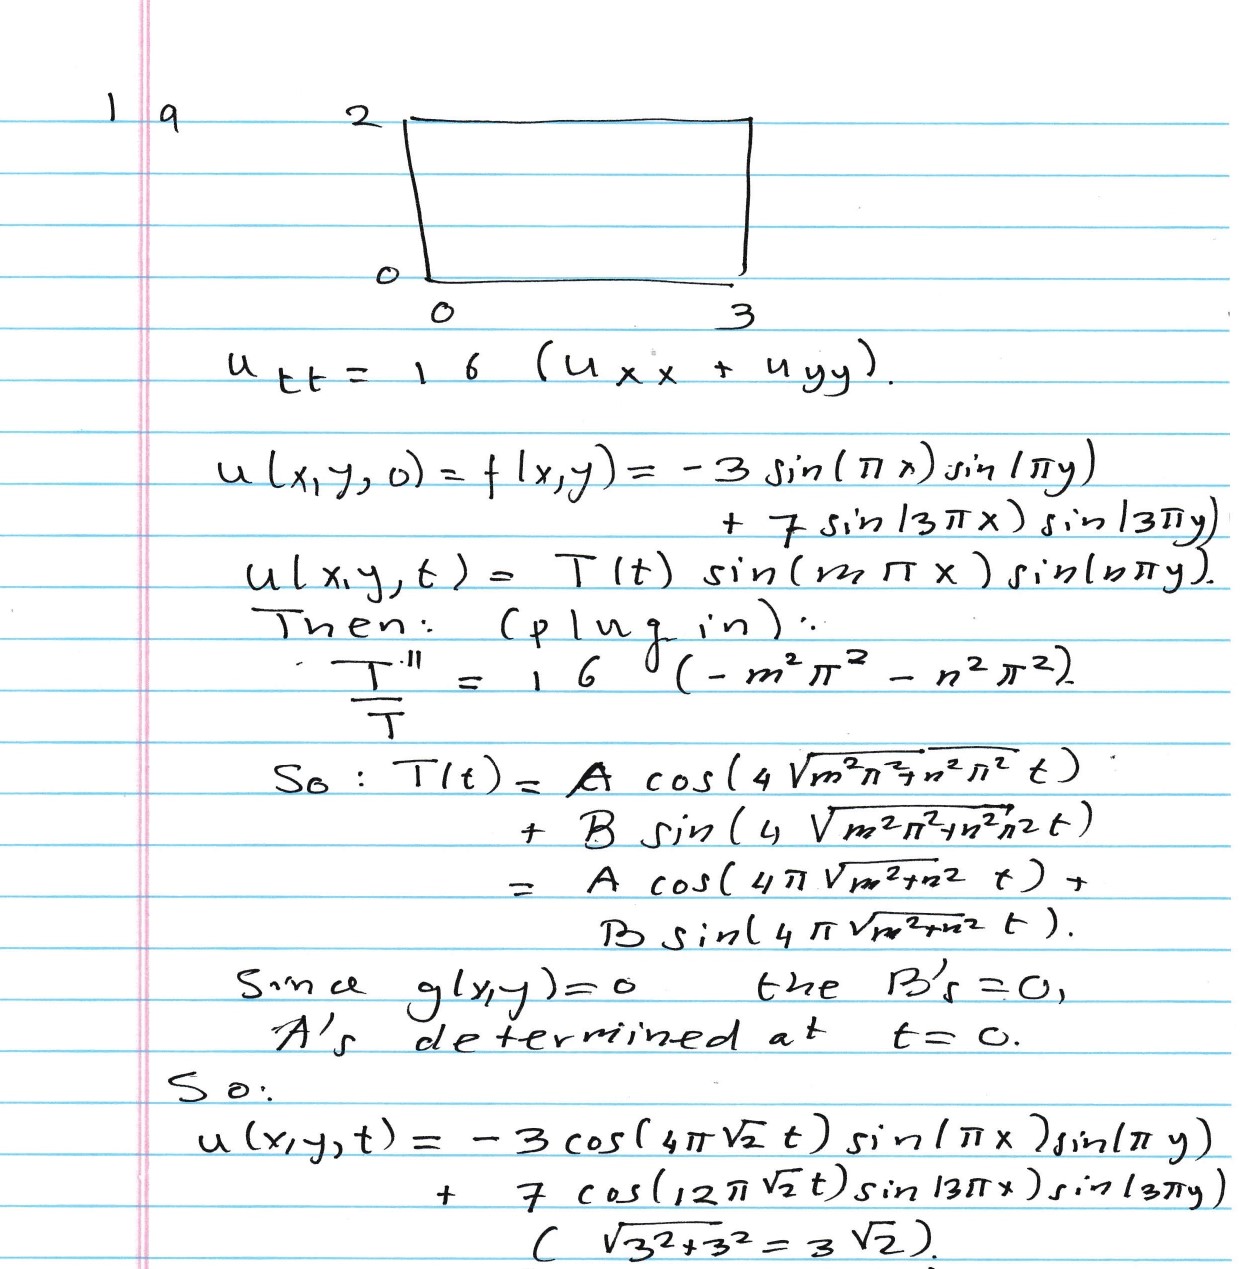 1 a 2
0
0 3
u_tt = 16 (u_xx + u_yy).
u(x,y,0) = f(x,y) = -3 sin(πx) sin(πy)
+ 7 sin(3πx) sin(3πy)
u(x,y,t) = T(t) sin(mπx) sin(nπy).
Then: (plug in):
T''/T = 16 (-m²π² - n²π²).
So: T(t) = A cos(4 √(m²π²+n²π²) t)
+ B sin(4 √(m²π²+n²π²) t)
= A cos(4π √(m²+n²) t) +
B sin(4π √(m²+n²) t).
Since g(x,y)=0 the B's =0,
A's determined at t=0.
So:
u(x,y,t) = -3 cos(4π√2 t) sin(πx) sin(πy)
+ 7 cos(12π√2 t) sin(3πx) sin(3πy)
(√(3²+3²) = 3√2).